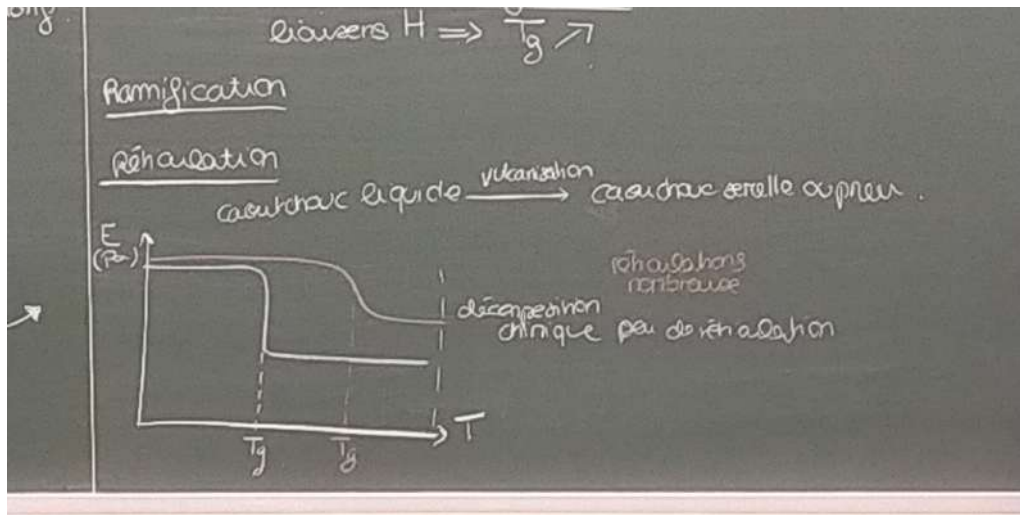 liaisons H => Tg ↗
Ramification
Réticulation
caoutchouc liquide vulcanisation → caoutchouc semelle ou pneu.
E
(Pa)
réticulations
nombreuse
décomposition
chimique peu de réticulation
T
Tg Tg